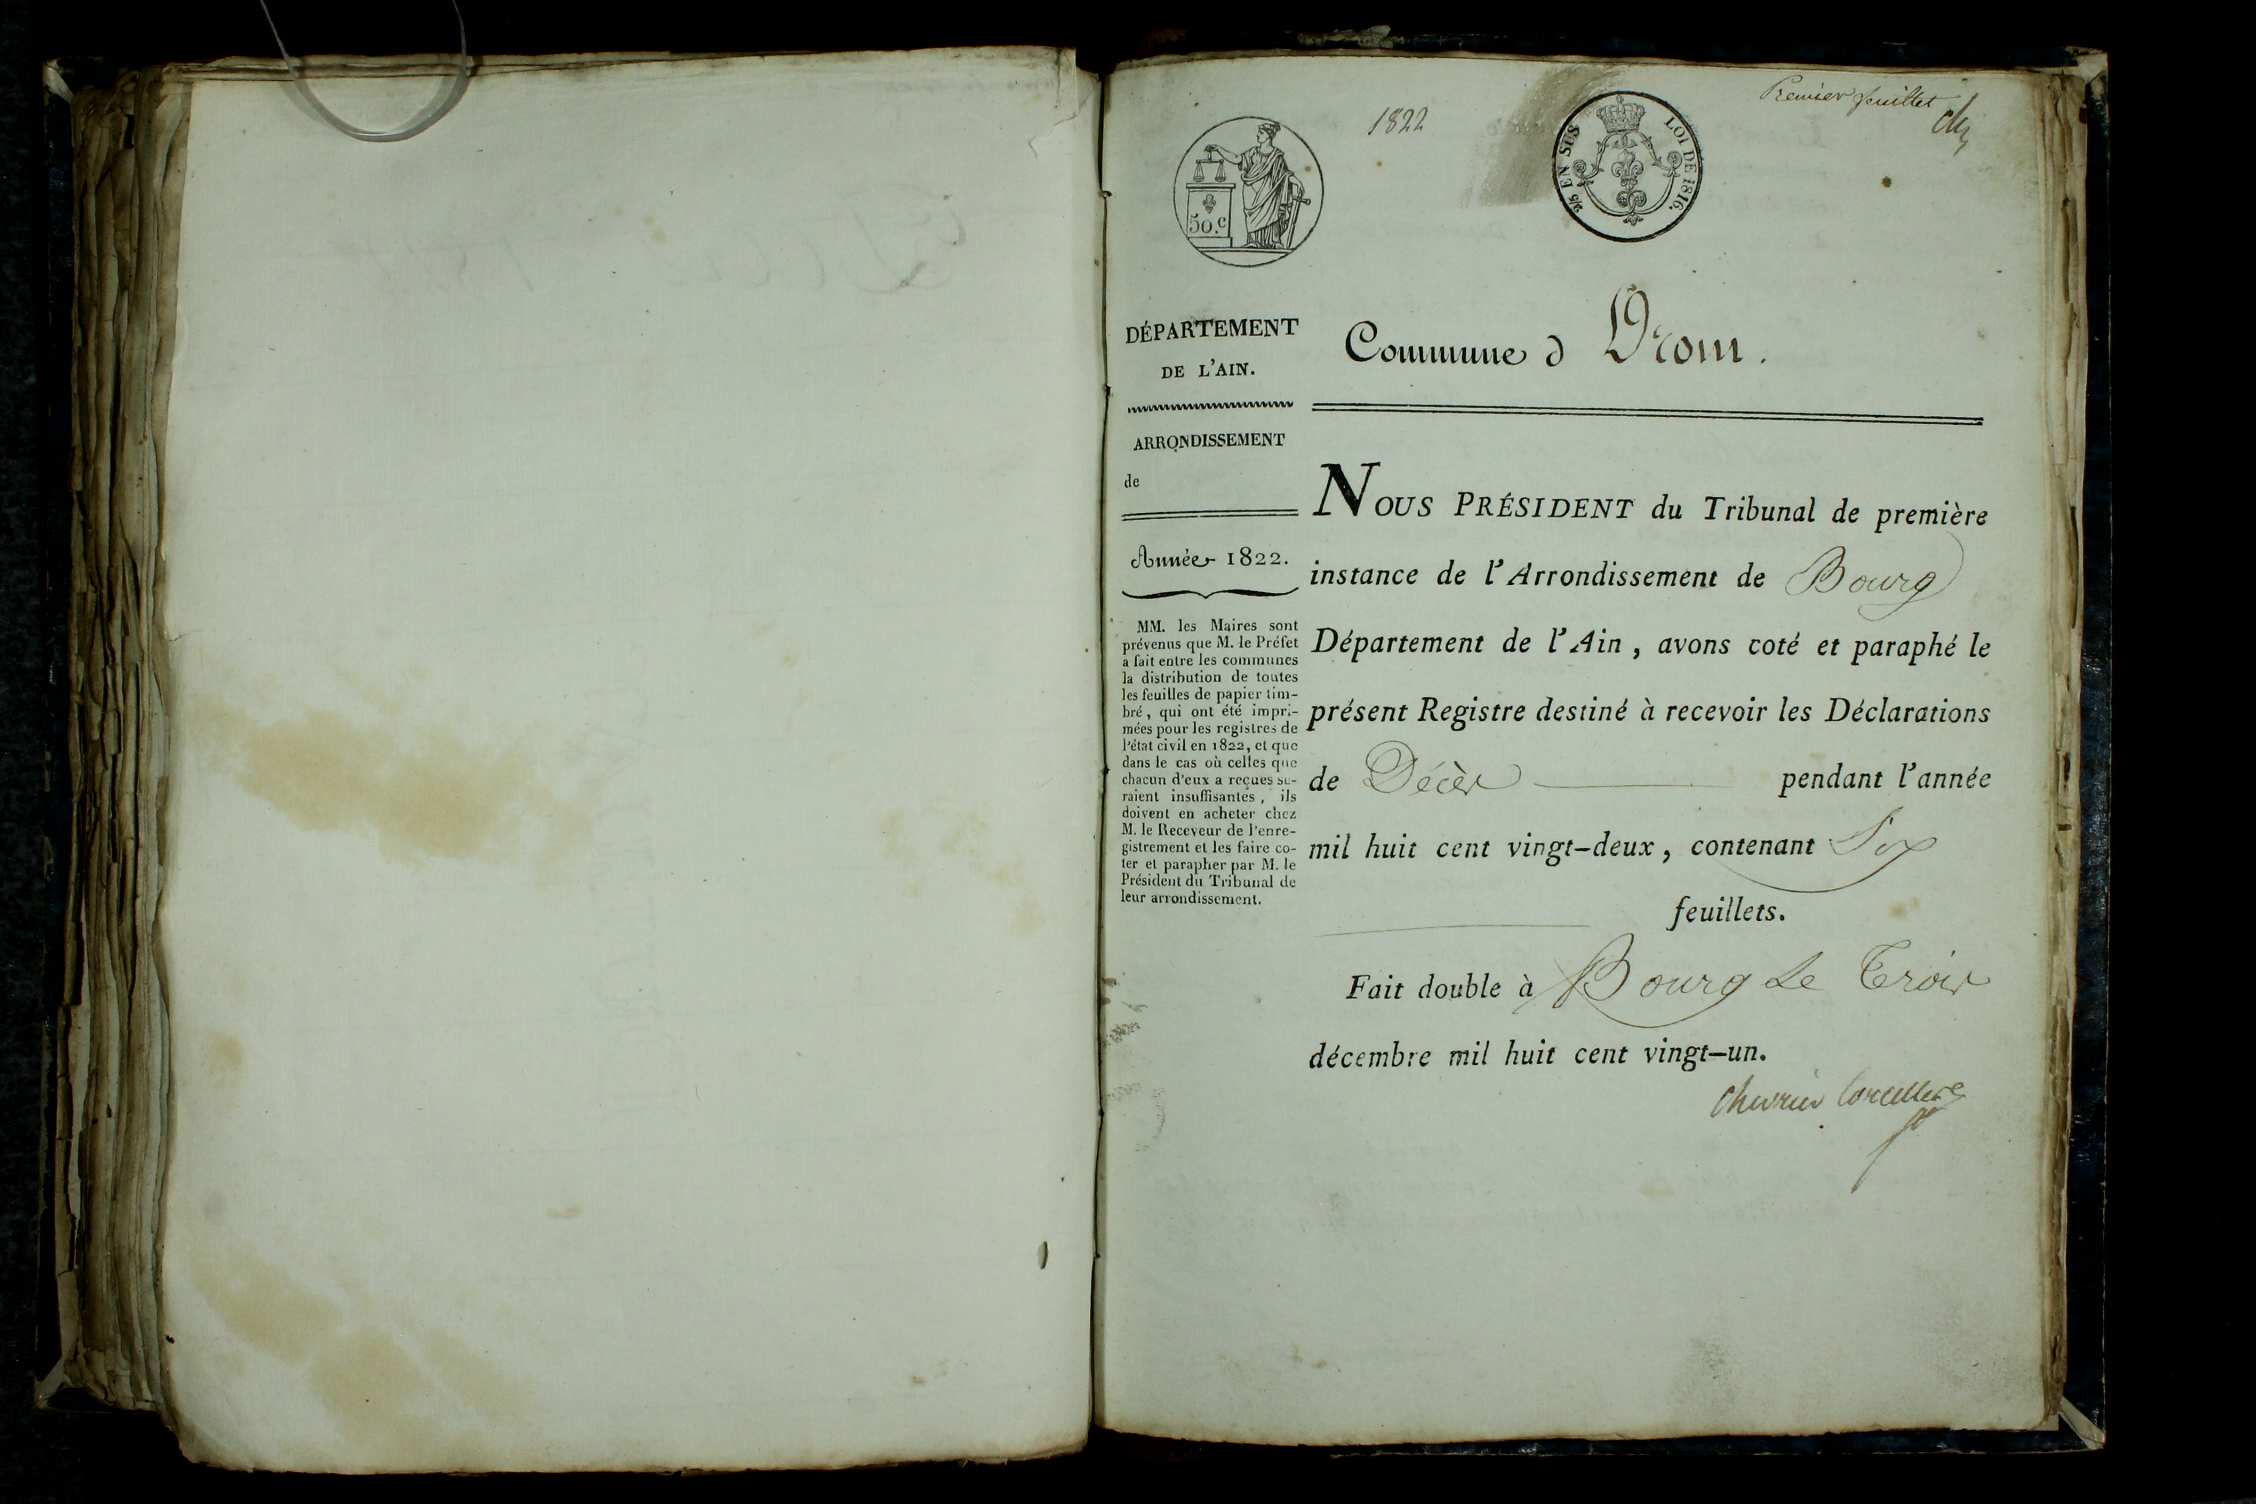 Premier feuillet
1822
2/5 EN SUS LOI DE 1816.
50.c
DÉPARTEMENT
DE L'AIN.
Commune d Drom.
ARRONDISSEMENT
de
Année 1822.
MM. les Maires sont
prévenus que M. le Préfet
a fait entre les communes
la distribution de toutes
les feuilles de papier tim-
bré, qui ont été impri-
mées pour les registres de
l'état civil en 1822, et que
dans le cas où celles que
chacun d'eux a reçues se-
raient insuffisantes, ils
doivent en acheter chez
M. le Receveur de l'enre-
gistrement et les faire co-
ter et parapher par M. le
Président du Tribunal de
leur arrondissement.
NOUS PRÉSIDENT du Tribunal de première
instance de l'Arrondissement de Bourg
Département de l'Ain, avons coté et paraphé le
présent Registre destiné à recevoir les Déclarations
de Décès pendant l'année
mil huit cent vingt-deux, contenant Six
feuillets.
Fait double à Bourg Le Trois
décembre mil huit cent vingt-un.